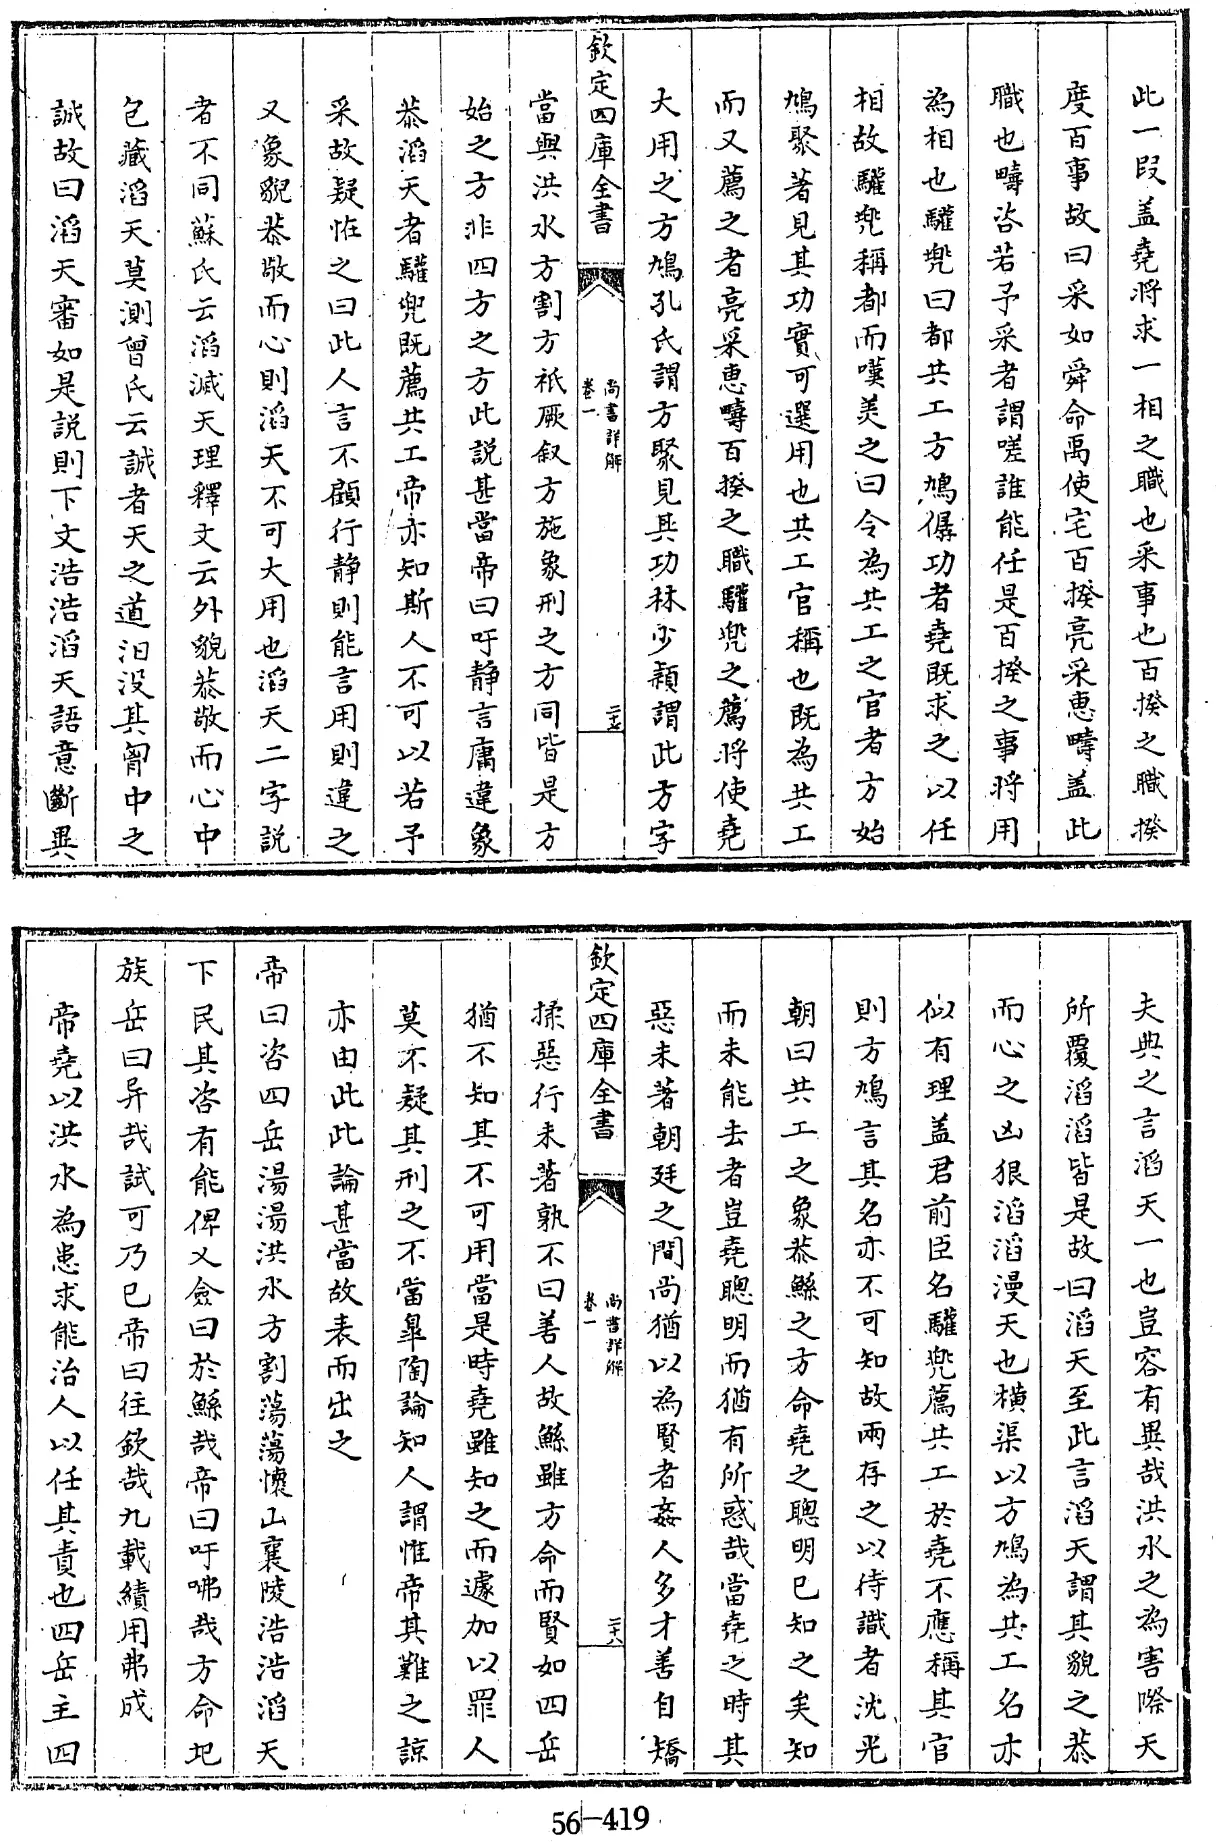 此一段蓋堯將求一相之職也采事也百揆之職揆
度百事故曰采如舜命禹使宅百揆亮采惠疇蓋此
職也疇咨若予采者謂嗟誰能任是百揆之事將用
為相也驩兜曰都共工方鳩僝功者堯既求之以任
相故驩兜稱都而嘆美之曰今為共工之官者方始
鳩聚著見其功實可選用也共工官稱也既為共工
而又薦之者亮采惠疇百揆之職驩兜之薦將使堯
大用之方鳩孔氏謂方聚見其功林少穎謂此方字
欽定四庫全書
尚書詳解
卷一
二十五
當與洪水方割方祇厥叙方施象刑之方同皆是方
始之方非四方之方此説甚當帝曰吁静言庸違象
恭滔天者驩兜既薦共工帝亦知斯人不可以若予
采故疑怪之曰此人言不顧行静則能言用則違之
又象貌恭敬而心則滔天不可大用也滔天二字説
者不同蘇氏云滔滅天理釋文云外貌恭敬而心中
包藏滔天莫測曾氏云誠者天之道汩没其胷中之
誠故曰滔天審如是説則下文浩浩滔天語意斷異
夫典之言滔天一也豈容有異哉洪水之為害際天
所覆滔滔皆是故曰滔天至此言滔天謂其貌之恭
而心之凶狠滔滔漫天也横渠以方鳩為共工名亦
似有理蓋君前臣名驩兜薦共工於堯不應稱其官
則方鳩言其名亦不可知故兩存之以侍識者沈光
朝曰共工之象恭鯀之方命堯之聰明已知之矣知
而未能去者豈堯聰明而猶有所惑哉當堯之時其
惡未著朝廷之間尚猶以為賢者姦人多才善自矯
欽定四庫全書
尚書詳解
卷一
二十六
揉惡行未著孰不曰善人故鯀雖方命而賢如四岳
猶不知其不可用當是時堯雖知之而遽加以罪人
莫不疑其刑之不當臯陶論知人謂惟帝其難之諒
亦由此此論甚當故表而出之
帝曰咨四岳湯湯洪水方割蕩蕩懷山襄陵浩浩滔天
下民其咨有能俾乂僉曰於鯀哉帝曰吁咈哉方命圮
族岳曰异哉試可乃已帝曰往欽哉九載績用弗成
帝堯以洪水為患求能治人以任其責也四岳主四
56-419